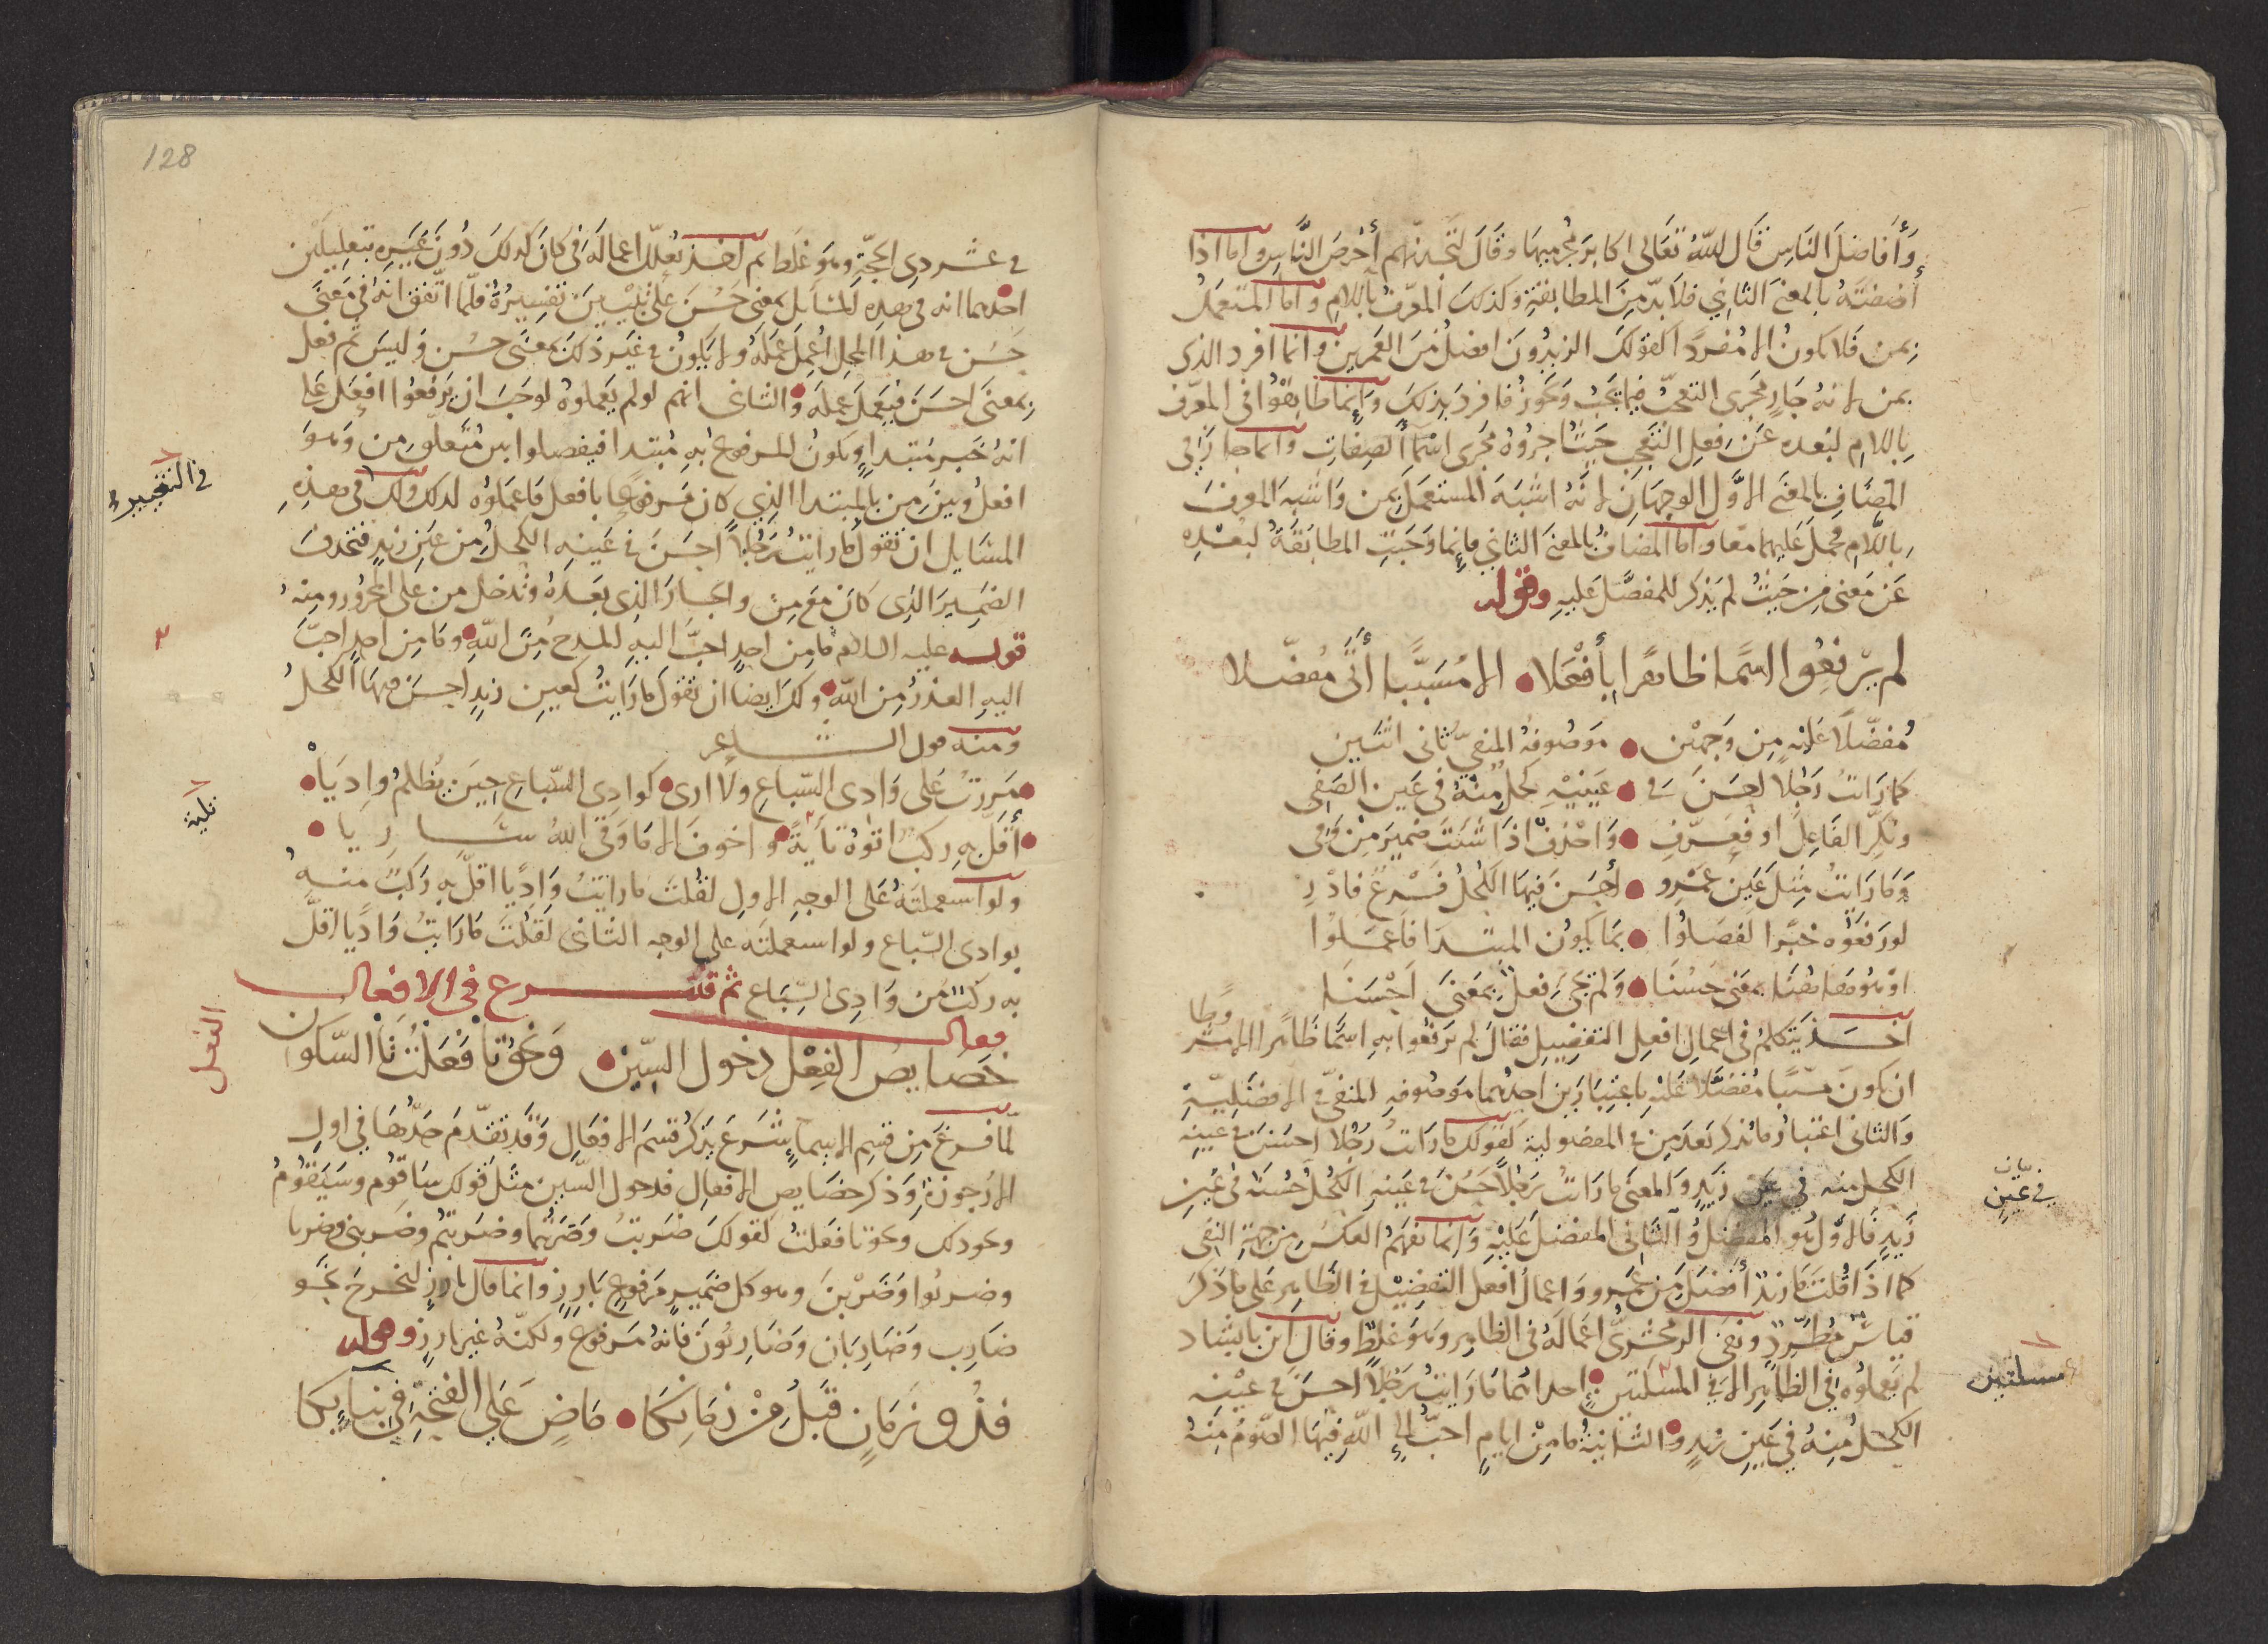 وأفاضل الناس قال الله تعالى اكابر مجرميها وقال لتجدنهم أحرص الناس واما اذا
أضفته بالمعنى الثاني فلا بد من المطابقة وكذلك المعرف باللام واما المستعمل
بمن فلا يكون الا مفردا كقولك الزيدون افضل من العمرين وانما افرد الذي
بمن لانه جار مجرى التعجب فيما يجب ويجوز فافرد بذلك وانما طابقوا في المعرف
باللام لبعده عن فعل التعجب حيث اجروه مجرى اسماء الصفات وانما جاز في
المضاف بالمعنى الاول الوجهان لانه اشبه المستعمل بمن واشبه المعرف
باللام فحمل عليهما معا واما المضاف بالمعنى الثاني فانما وجبت المطابقة لبعده
عن معنى من حيث لم يذكر المفضل عليه وقوله
لم يرفعوا اسما ظاهرا بأفعلا الا مسببا أتى مفضلا
مفضلا عليه من وجهين موصوفه المنفي ثاني اثنين
كما رايت رجلا احسن في عينيه كحل منه في عين الصفي
ونكر الفاعل او فعرف واحذف اذا شئت ضمير من وفي
وما رايت مثل عين عمرو أحسن فيها الكحل فسرع فادر
لو رفعوه خبرا لفصلوا بما يكون المبتدا فاعملوا
او هو هاهنا بمعنى حسنا ولم يجئ فعل بمعنى احسنا
اخذ يتكلم في اعمال افعل التفضيل فقال لم يرفعوا به اسما ظاهرا الا بشرط
وطا
ان يكون مسببا مفضلا عليه باعتبارين احدهما موصوفه المنفي في الافضلية
والثاني اعتبار ما يذكر بعد من في المفضولية كقولك ما رايت رجلا احسن في عينه
الكحل منه في عين زيد والمعنى ما رايت رجلا حسن في عينه الكحل حسنه في عين
زيد فالاول هو المفضل والثاني المفضل عليه وانما تفهم العكس من جهة النفي
كما اذا قلت ما زيد أفضل من عمرو واعمال افعل التفضيل في الظاهر على ما ذكر
قياس مطرد ونفى الزمخشري اعماله في الظاهر وهو غلط وقال ابن بابشاد
لم يعملوه في الظاهر الا في المسئلتين احداهما ما رايت رجلا احسن في عينه
الكحل منه في عين زيد والثانية ما من ايام احب الى الله فيها الصوم منه
بيان
في عين
مسئلتين
128
في عشر ذي الحجة وهو غلط ثم اخذ يعلل اعماله في كان كذلك دون غيره بتعليلين
احدهما انه في هذه المسايل بمعنى حسن على تبيين تفسيره فلما اتفق انه في معنى
حسن في هذا المحل اعمل عمله ولا يكون في غير ذلك بمعنى حسن وليس ثم فعل
بمعنى احسن فيعمل عمله والثاني انهم لو لم يعملوه لوجب ان يرفعوا افعل على
انه خبر مبتدا ويكون المرفوع به مبتدا فيفصلوا بين متعلق من وهو
افعل وبين من بالمبتدا الذي كان مرفوعا بافعل فاعملوه لذلك ولك في هذه
المسايل ان تقول ما رايت رجلا احسن في عينه الكحل من عين زيد فتحذف
الضمير الذي كان مع من والجار الذي بعده وتدخل من على المجرور ومنه
قوله عليه السلام ما من احد احب اليه المدح من الله وما من احد احب
اليه العذر من الله ولك ايضا ان تقول ما رايت كعين زيد احسن فيها الكحل
ومنه قول الشاعر
مررت على وادي السباع ولا ارى كوادي السباع حين يظلم واديا
أقل به ركب اتوه تأية واخوف الا ما وقى الله ساريا
ولو استعملته على الوجه الاول لقلت ما رايت واديا اقل به ركب منه
بوادي السباع ولو استعملته على الوجه الثاني لقلت ما رايت واديا اقل
به ركب من وادي السباع ثم قد شرع في الافعال
فقال
خصايص الفعل دخول السين ونحو تا فعلت تا السكون
لما فرغ من قسم الاسماء شرع يذكر قسم الافعال وقد تقدم حدها في اول
الارجوزة وذكر خصايص الافعال فدخول السين مثل قولك ساقوم وسيقوم
ونحو ذلك ونحو تا فعلت كقولك ضربت وضربتما وضربتم وضربتن وضربا
وضربوا وضربن وهو كل ضمير مرفوع بارز وانما قال بارز ليخرج نحو
ضارب وضاربان وضاربون فانه مرفوع ولكنه غير بارز وقوله
فذو زمان قبل من زمانكا ماض على الفتحة في بنايكا
الفعل